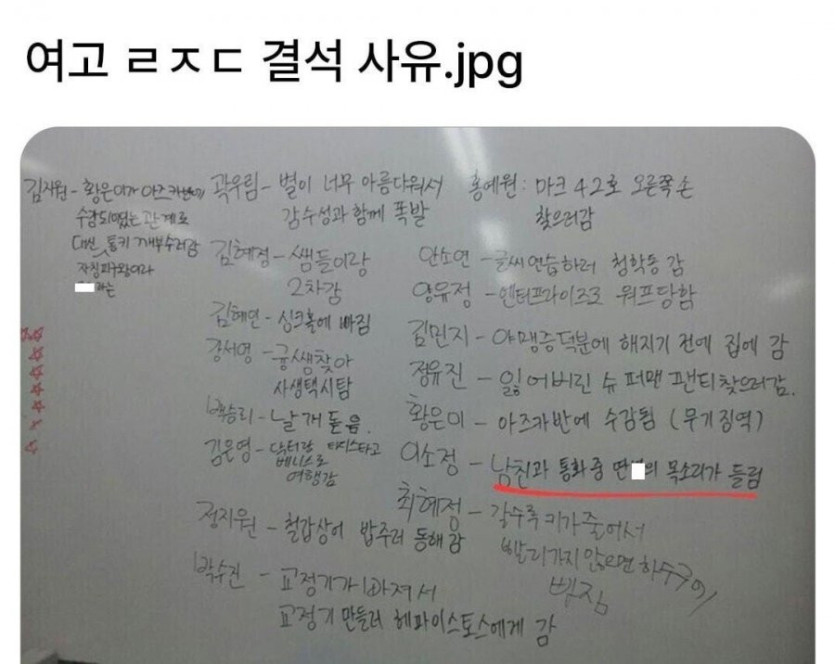 여고 ㄹㅈㄷ 결석 사유.jpg
김지원 - 황은이가 아즈카반에
수감되었는 관계로
대신 통키 개부수러감
자칭피구왕이라
라는
곽우림 - 별이 너무 아름다워서
감수성과 함께 폭발
김혜정 - 쌤들이랑
2차감
김혜연 - 싱크홀에 빠짐
강서영 - 쌤찾아
사생택시탐
승리 - 날개 돋음.
김은영 - 닥터랑 타디스타고
베니스로
여행감
정지원 - 철갑상어 밥주러 동해감
박수진 - 교정기가 빠져서
교정기 만들러 헤파이스토스에게 감
홍예원 : 마크 42호 오른쪽 손
찾으러감
안소연 - 글씨연습하러 청학동 감
양유정 - 엔터프라이즈로 워프당함
김민지 - 야맹증덕분에 해지기 전에 집에 감
정유진 - 잃어버린 슈퍼맨 팬티찾으러감.
황은미 - 아즈카반에 수감됨 (무기징역)
이소정 - 남친과 통화중 딴 의 목소리가 들림
최혜정 - 갈수록 키가줄어서
빨리가지 않으면 하수구에
빠짐